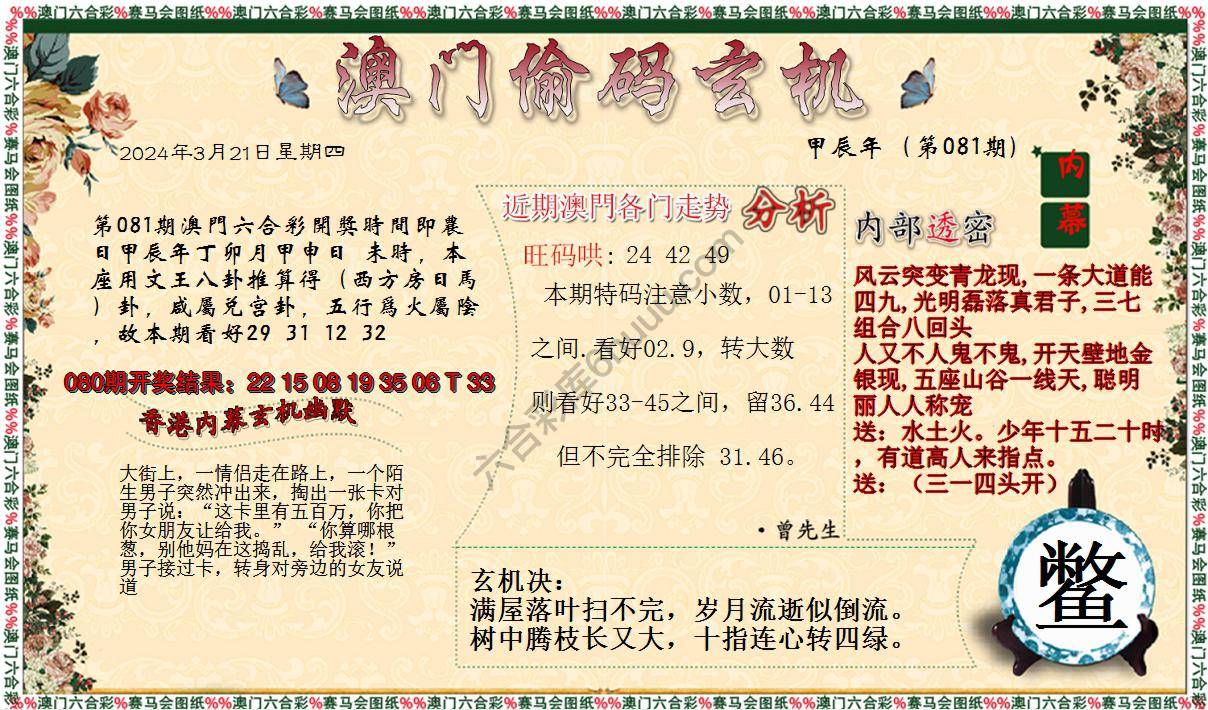 %%澳门六合彩%赛马会图纸%%澳门六合彩%赛马会图纸%%澳门六合彩%赛马会图纸%%澳门六合彩%赛马会图纸%%澳门六合彩%赛马会图纸%%澳门六合彩%赛马会图纸%%
澳门偷码玄机
2024年3月21日星期四
甲辰年（第081期）
内
幕
第081期澳門六合彩開獎時間即農
日甲辰年丁卯月甲申日 未時，本
座用文王八卦推算得（西方房日馬
）卦，咸屬兑宫卦，五行爲火屬陰
，故本期看好29 31 12 32
080期开奖结果：22 15 08 19 35 06 T 33
香港内幕玄机幽默
大街上，一情侣走在路上，一个陌
生男子突然冲出来，掏出一张卡对
男子说：“这卡里有五百万，你把
你女朋友让给我。” “你算哪根
葱，别他妈在这捣乱，给我滚！”
男子接过卡，转身对旁边的女友说
道
近期澳門各门走势 分析
旺码哄: 24 42 49
本期特码注意小数，01-13
之间.看好02.9，转大数
则看好33-45之间，留36.44
但不完全排除 31.46。
·曾先生
内部透密
风云突变青龙现,一条大道能
四九,光明磊落真君子,三七
组合八回头
人又不人鬼不鬼,开天壁地金
银现,五座山谷一线天,聪明
丽人人称宠
送：水土火。少年十五二十时
，有道高人来指点。
送：（三一四头开）
玄机决：
满屋落叶扫不完，岁月流逝似倒流。
树中腾枝长又大，十指连心转四绿。
鳖
%%澳门六合彩%赛马会图纸%%澳门六合彩%赛马会图纸%%澳门六合彩%赛马会图纸%%澳门六合彩%赛马会图纸%%澳门六合彩%赛马会图纸%%澳门六合彩%赛马会图纸%%